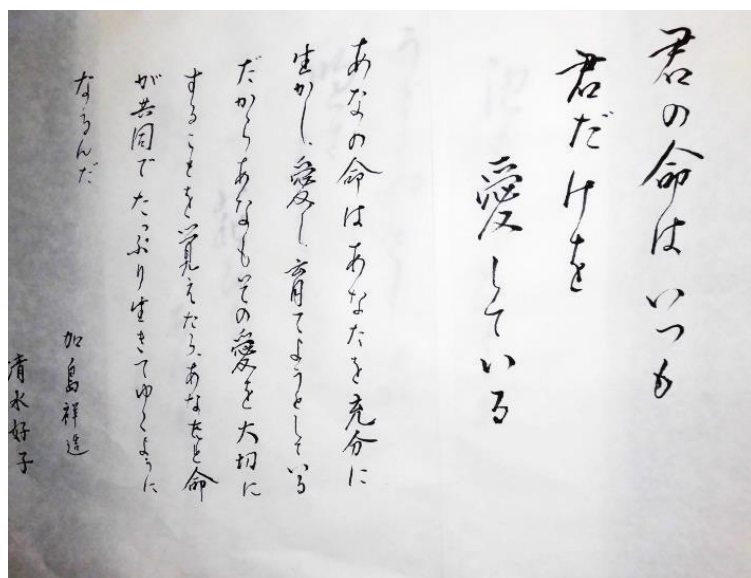 君の命はいつも
君だけを
愛している
あなの命はあなたを充分に
生かし、愛し育てようとしている
だからあなもいその愛を大切に
することを覚えたら、あなたと命
が共同でたっぷり生きてゆくように
なるんだ
加島祥造
清水好子